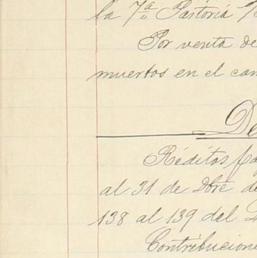 la 7ª Pastoria
Por venta de
muertos en el cam
De
Réditos pag
al 31 de Dbre de
138 al 139 del D
Contribucione